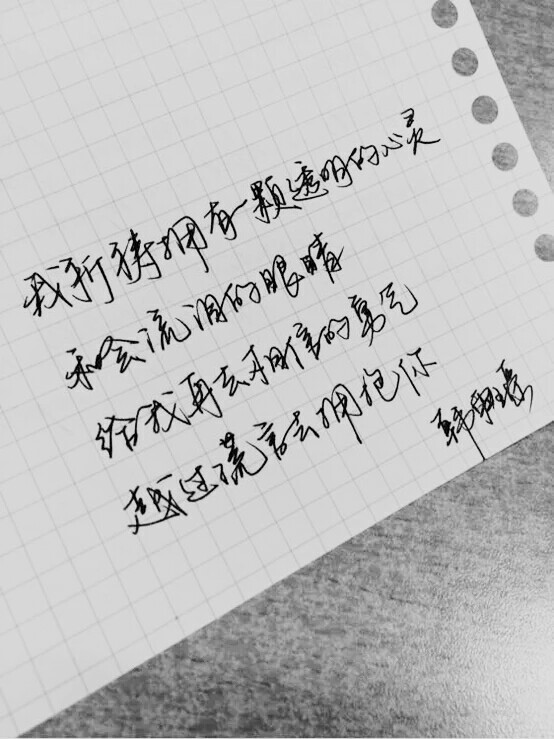 我祈祷拥有一颗透明的心灵
和会流泪的眼睛
给我再去相信的勇气
越过谎言去拥抱你